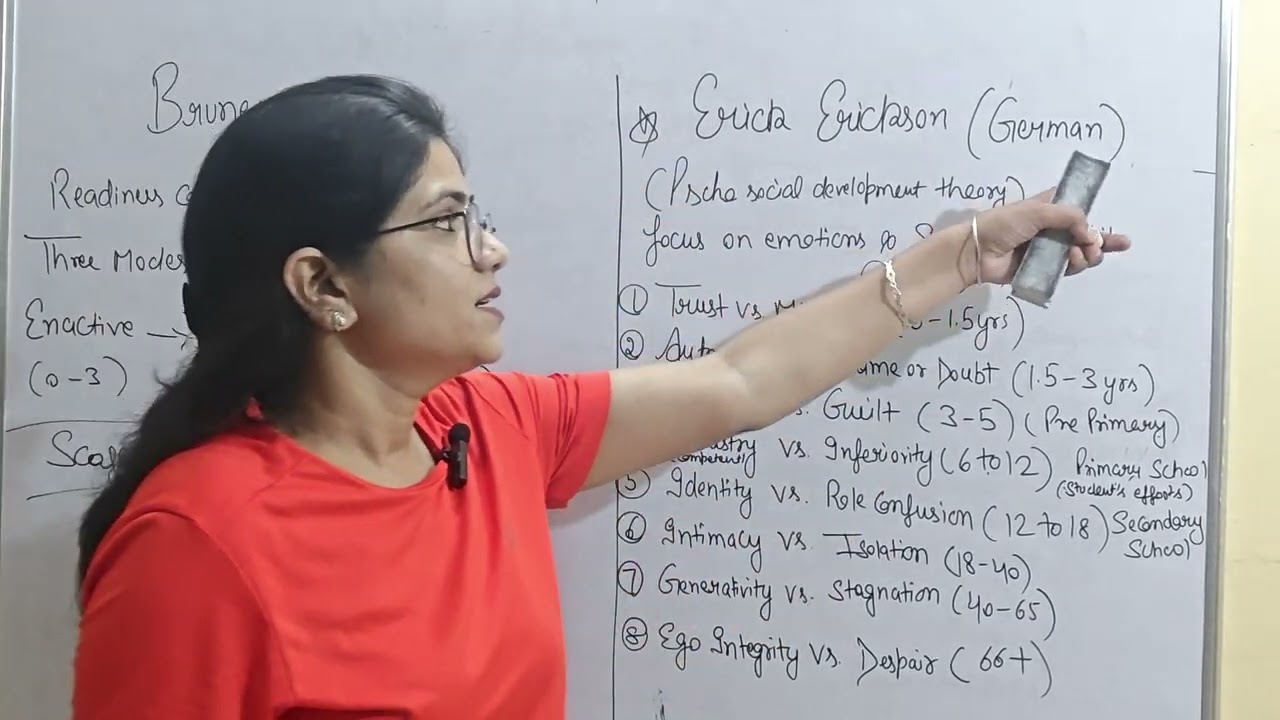 Brune
Readiness
Three Modes
Enactive →
(0-3)
Erick Erickson (German)
(Pscho social development theory)
focus on emotions &
① Trust vs - 1.5yrs)
②
or Doubt (1.5-3 yrs)
vs. Guilt (3-5) (Pre Primary)
vs. Inferiority (6 to 12) Primary School
(Student's efforts)
⑤ Identity vs. Role Confusion (12 to 18) Secondary
School
⑥ Intimacy vs. Isolation (18-40)
⑦ Generativity vs. Stagnation (40-65)
⑧ Ego Integrity vs. Despair (66+)